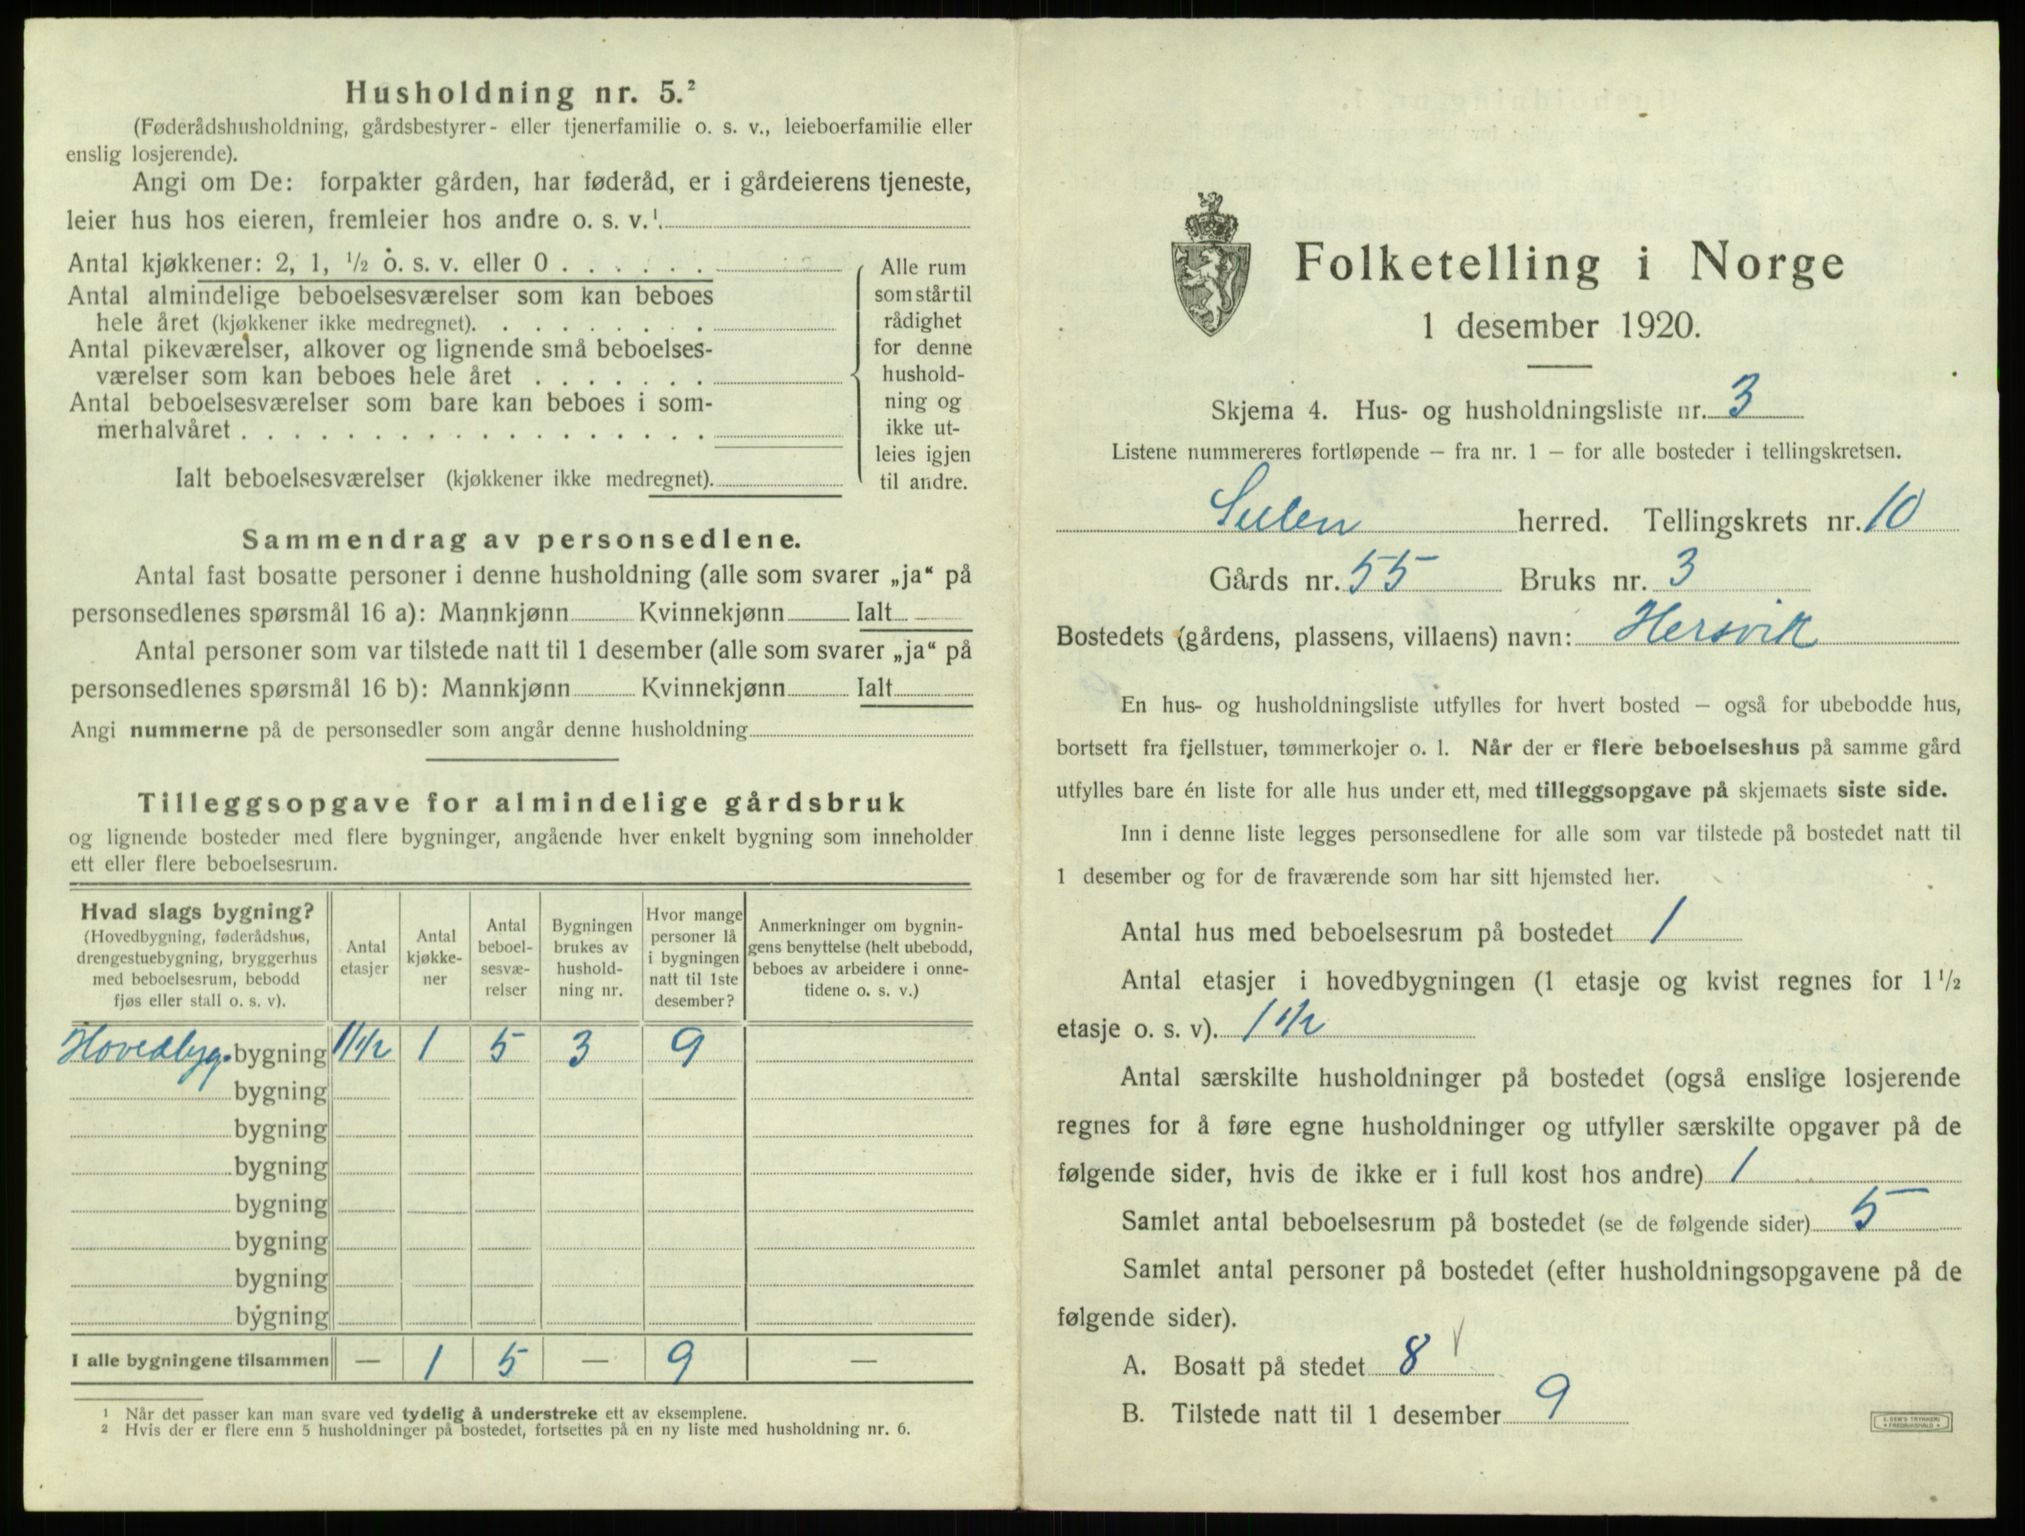 Husholdning nr. 5.²
(Føderådshusholdning, gårdsbestyrer- eller tjenerfamilie o. s. v., leieboerfamilie eller
enslig losjerende).
Angi om De: forpakter gården, har føderåd, er i gårdeierens tjeneste,
leier hus hos eieren, fremleier hos andre o. s. v.¹
Antal kjøkkener: 2, 1, ½ o. s. v. eller 0 . . . . . .
Antal almindelige beboelsesværelser som kan beboes
hele året (kjøkkener ikke medregnet). . . . . . . . .
Antal pikeværelser, alkover og lignende små beboelses-
værelser som kan beboes hele året . . . . . . .
Antal beboelsesværelser som bare kan beboes i som-
merhalvåret . . . . . . . . . . . . . . . . . .
Ialt beboelsesværelser (kjøkkener ikke medregnet).
Alle rum
som står til
rådighet
for denne
hushold-
ning og
ikke ut-
leies igjen
til andre.
Sammendrag av personsedlene.
Antal fast bosatte personer i denne husholdning (alle som svarer „ja“ på
personsedlenes spørsmål 16 a): Mannkjønn Kvinnekjønn Ialt
Antal personer som var tilstede natt til 1 desember (alle som svarer „ja“ på
personsedlenes spørsmål 16 b): Mannkjønn Kvinnekjønn Ialt
Angi nummerne på de personsedler som angår denne husholdning
Tilleggsopgave for almindelige gårdsbruk
og lignende bosteder med flere bygninger, angående hver enkelt bygning som inneholder
ett eller flere beboelsesrum.
Hvad slags bygning?
(Hovedbygning, føderådshus,
drengestuebygning, bryggerhus
med beboelsesrum, bebodd
fjøs eller stall o. s. v).
Antal
etasjer
Antal
kjøkke-
ner
Antal
beboel-
sesvæ-
relser
Bygningen
brukes av
hushold-
ning nr.
Hvor mange
personer lå
i bygningen
natt til 1ste
desember?
Anmerkninger om bygnin-
gens benyttelse (helt ubebodd,
beboes av arbeidere i onne-
tidene o. s. v.)
Hovedbyg. bygning 1 1/2 1 5 3 9
bygning
bygning
bygning
bygning
bygning
bygning
bygning
I alle bygningene tilsammen — 1 5 — 9 —
¹ Når det passer kan man svare ved tydelig å understreke ett av eksemplene.
² Hvis der er flere enn 5 husholdninger på bostedet, fortsettes på en ny liste med husholdning nr. 6.
Folketelling i Norge
1 desember 1920.
Skjema 4. Hus- og husholdningsliste nr. 3
Listene nummereres fortløpende — fra nr. 1 — for alle bosteder i tellingskretsen.
Sulen herred. Tellingskrets nr. 10
Gårds nr. 55 Bruks nr. 3
Bostedets (gårdens, plassens, villaens) navn: Hersvik
En hus- og husholdningsliste utfylles for hvert bosted — også for ubebodde hus,
bortsett fra fjellstuer, tømmerkojer o. l. Når der er flere beboelseshus på samme gård
utfylles bare én liste for alle hus under ett, med tilleggsopgave på skjemaets siste side.
Inn i denne liste legges personsedlene for alle som var tilstede på bostedet natt til
1 desember og for de fraværende som har sitt hjemsted her.
Antal hus med beboelsesrum på bostedet 1
Antal etasjer i hovedbygningen (1 etasje og kvist regnes for 1 ½
etasje o. s. v). 1 1/2
Antal særskilte husholdninger på bostedet (også enslige losjerende
regnes for å føre egne husholdninger og utfyller særskilte opgaver på de
følgende sider, hvis de ikke er i full kost hos andre) 1
Samlet antal beboelsesrum på bostedet (se de følgende sider) 5
Samlet antal personer på bostedet (efter husholdningsopgavene på de
følgende sider).
A. Bosatt på stedet 8
B. Tilstede natt til 1 desember 9